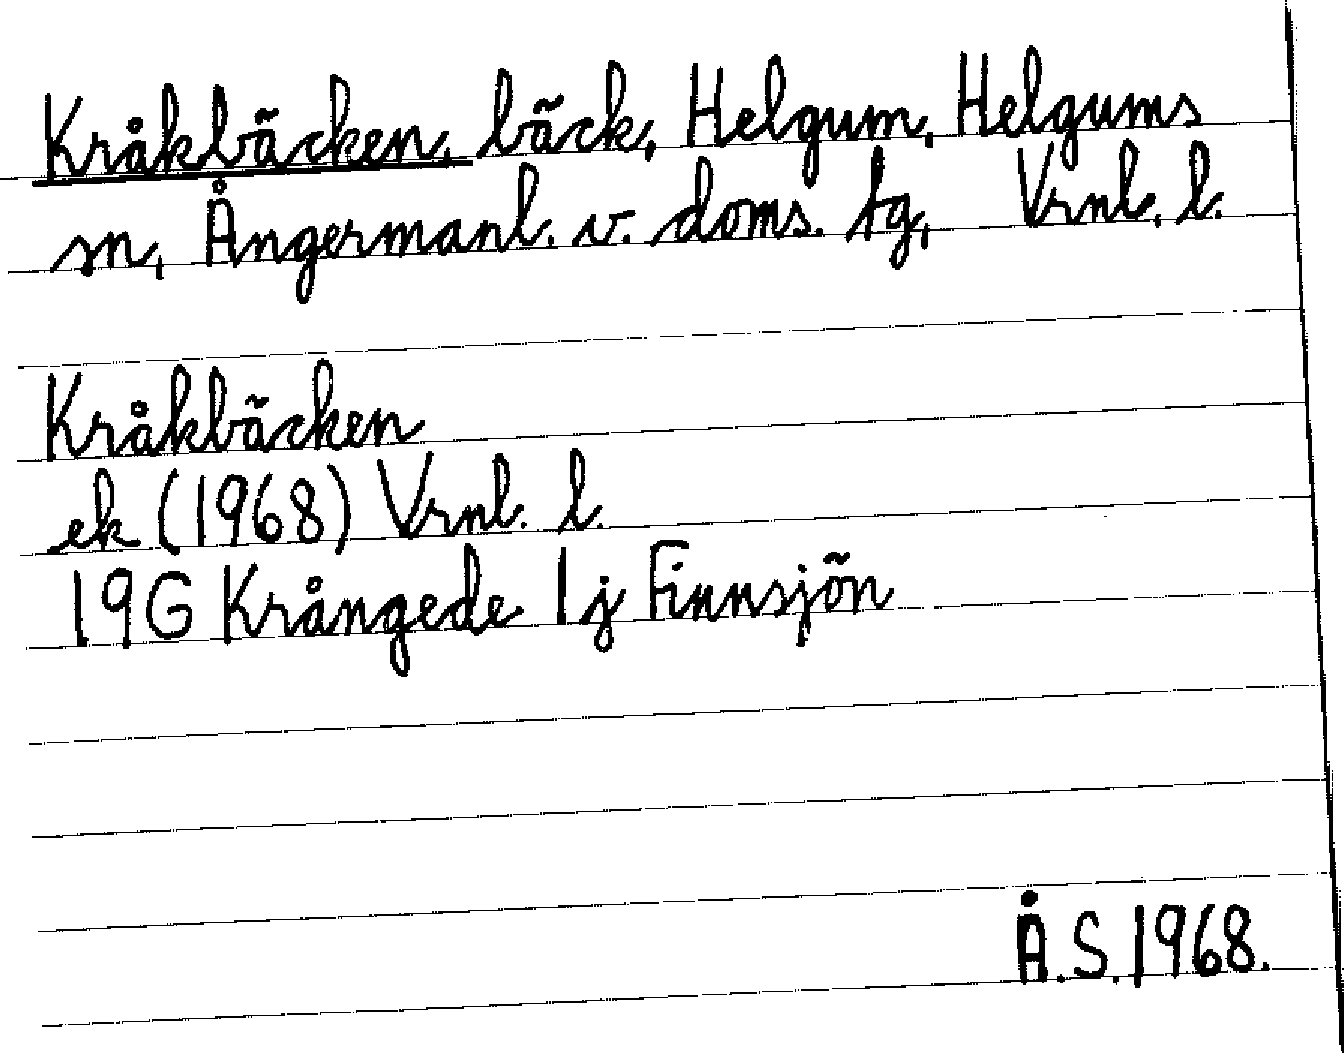 Kråkbäcken, bäck, Helgum, Helgums
sn, Ångermanl. v. doms. tg, Vrnl. l.
Kråkbäcken
ek (1968) Vrnl. l.
19G Krångede 1j Finnsjön
Å.S. 1968.